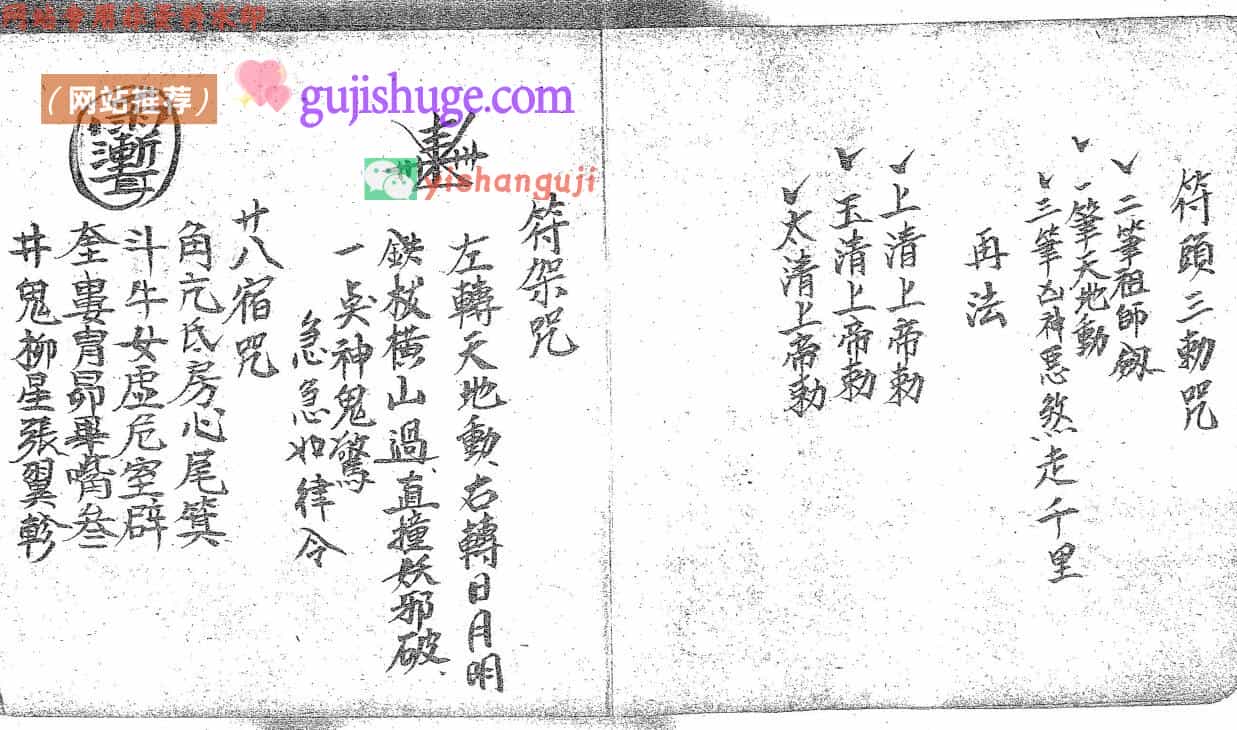 符頭三勅咒
二筆祖師劔
一筆天地動
三筆凶神惡煞走千里
再法
上清上帝勅
玉清上帝勅
太清上帝勅
符架咒
左轉天地動右轉日月明
鉄杖橫山過直撞妖邪破
一吳神鬼驚
急急如律令
廿八宿咒
角亢氐房心尾箕
斗牛女虛危室辟
奎婁胃昴畢嘴叄
井鬼柳星張翼軫
(网站推荐)
gujishuge.com
yishanguji